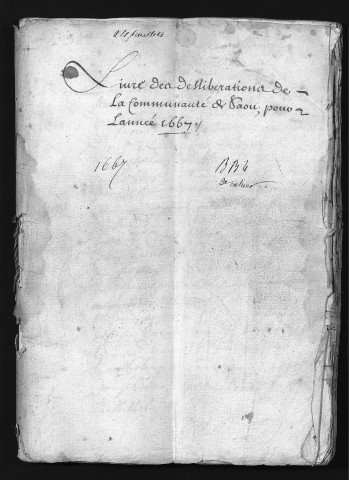 24 feuillets
Livre des desliberations de
La Communauté de Saou, pour
Lannée 1667
1667
BB4
3e cahier